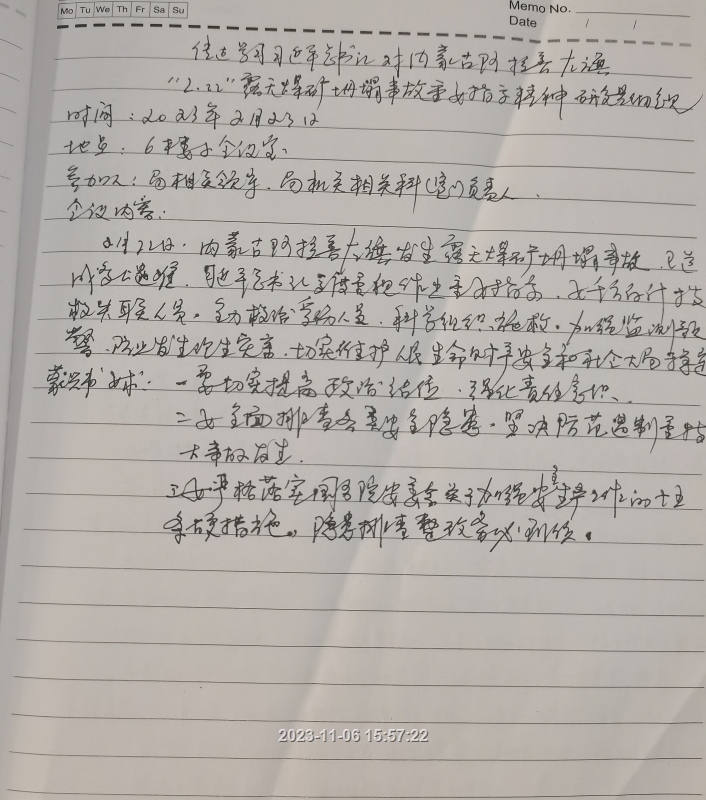 Mo Tu We Th Fr Sa Su
Memo No.
Date / /
传达学习习近平总书记对内蒙古阿拉善左旗
“2.22”露天煤矿坍塌事故重要指示精神
时间：2023年2月23日
地点：6楼会议室.
参加人：局相关领导、局机关相关科（室）负责人.
会议内容：
2月22日，内蒙古阿拉善左旗发生露天煤矿坍塌事故，已造
成多人遇难，习近平总书记高度重视作出重要指示，要千方百计搜
救失联人员。全力救治受伤人员，科学组织施救。加强监测预
警，防止发生次生灾害，切实维护人民生命财产安全和社会大局稳定
要求：一要切实提高政治站位，强化责任意识、
二要全面排查各类安全隐患。坚决防范遏制重特
大事故发生.
三要严格落实国务院安委会关于加强安全生产工作的十五
条硬措施。隐患排查整改务必到位。
2023-11-06 15:57:22